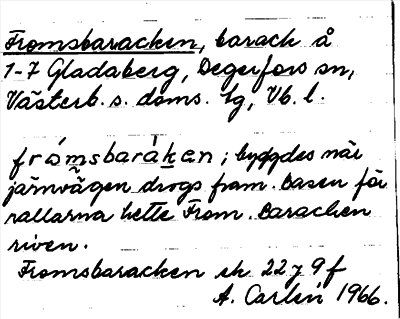 Fromsbaracken, barack å
1-7 Gladaberg, Degerfors sn,
Västerb. s. doms. tg, Vb. l.
fråmsbaràken; byggdes när
järnvägen drogs fram. Basen för
rallarna hette From. Baracken
riven.
Fromsbaracken ek 22 J 9 f
A. Carlén 1966.